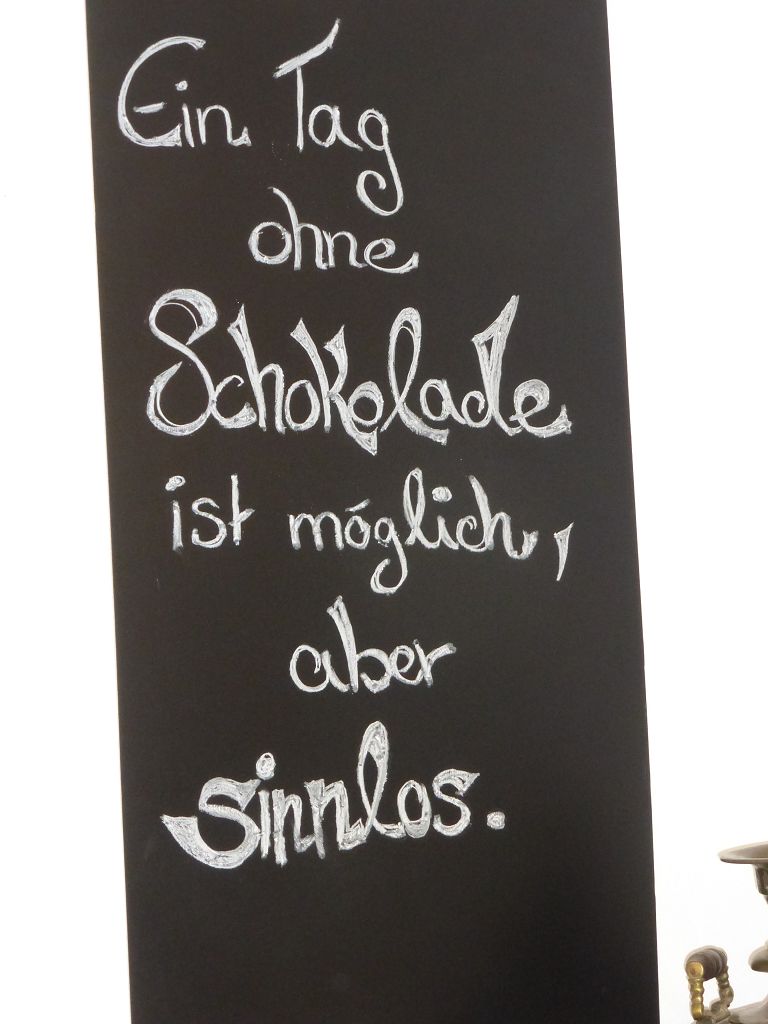 Ein Tag
ohne
Schokolade
ist möglich,
aber
sinnlos.